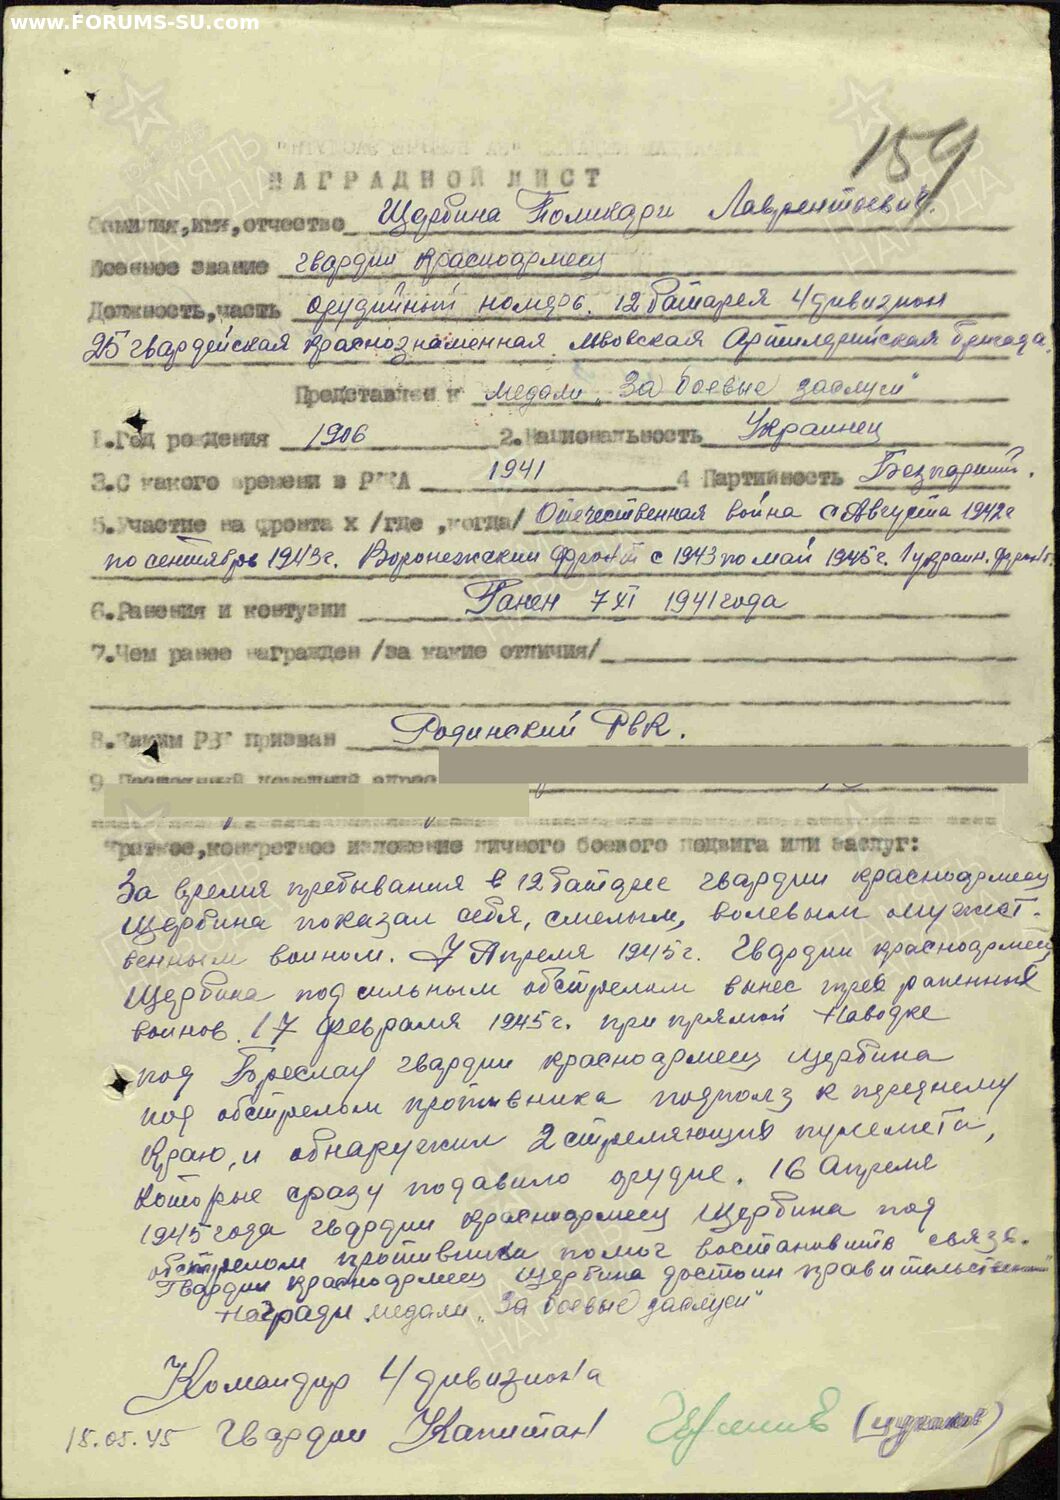 www.FORUMS-SU.com
159
НАГРАДНОЙ ЛИСТ
Фамилия,имя,отчество Щербина Поликарп Лаврентьевич.
Военное звание гвардии красноармеец
Должность,часть орудийный номер. 12 батарея 4 дивизион
25 гвардейская Краснознаменная Львовская Артилерийская бригада.
Представлен к медали „За боевые заслуги"
1.Год рождения 1906 2.Национальность Украинец
3.С какого времени в РККА 1941 4 Партийность Безпартий.
5.Участие на фронта х /где ,когда/ Отечественная война с Августа 1942г
по сентябрь 1943г. Воронежский фронт с 1943 по май 1945г. 1 украин. фронт.
6.Ранения и контузии Ранен 7 XI 1941 года
7.Чем ранее награжден /за какие отличия/
8.Каким РВК призван Родинский РВК.
9
Краткое,конкретное изложение личного боевого подвига или заслуг:
За время пребывания в 12 батарее гвардии красноармеец
Щербина показал себя, смелым, волевым мужест-
венным воином. 7 Апреля 1945г. Гвардии красноармеец
Щербина под сильным обстрелом вынес трех раненных
воинов. 17 февраля 1945г. при прямой наводке
под Бреслау гвардии красноармеец Щербина
под обстрелом противника подполз к переднему
краю, и обнаружил 2 стреляющих пулемета,
которые сразу подавило орудие. 16 Апреля
1945 года гвардии красноармеец Щербина под
обстрелом противника помог востановить связь.
Гвардии красноармеец Щербина достоин правительственной
награды медали „За боевые заслуги"
Командир 4 дивизиона
15.05.45 Гвардии Капитан